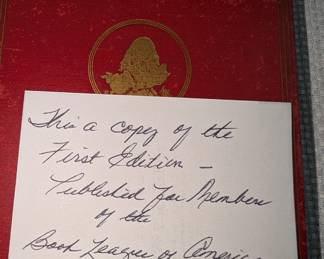 This a copy of the
First Edition —
Published for Members
of the
Book League of America